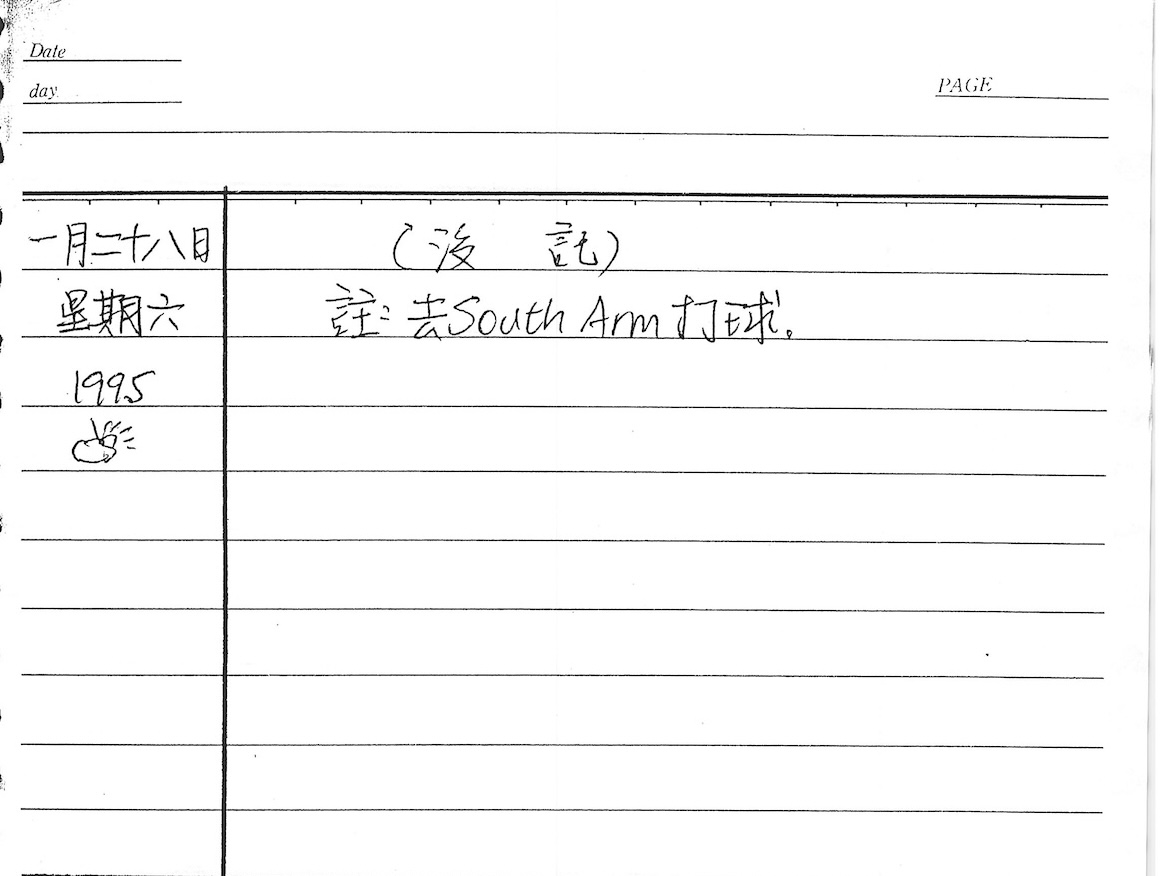 Date
day.
PAGE
一月二十八日
(沒 記)
星期六
註: 去South Arm 打球.
1995